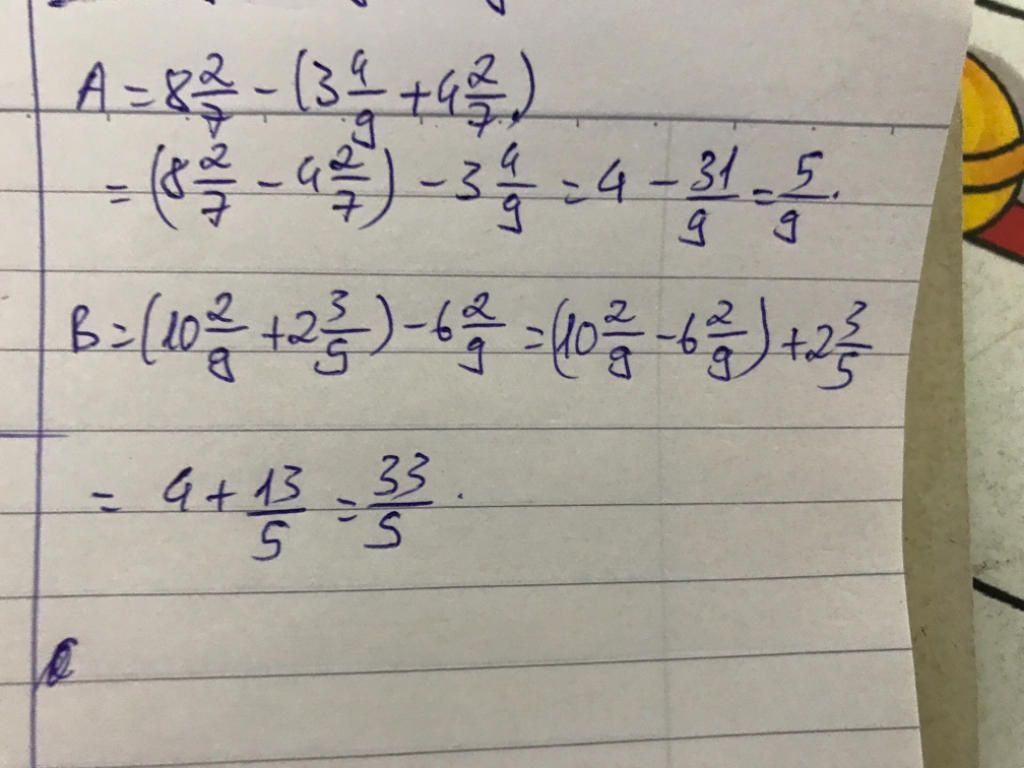 A = 8 2/7 - (3 4/9 + 4 2/7)
= (8 2/7 - 4 2/7) - 3 4/9 = 4 - 31/9 = 5/9.
B = (10 2/9 + 2 3/5) - 6 2/9 = (10 2/9 - 6 2/9) + 2 3/5
= 4 + 13/5 = 33/5.